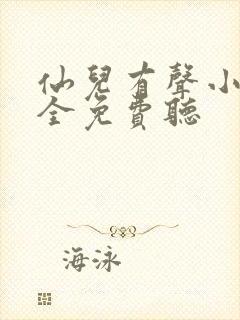 仙兒有聲小
全免費聽
海泳